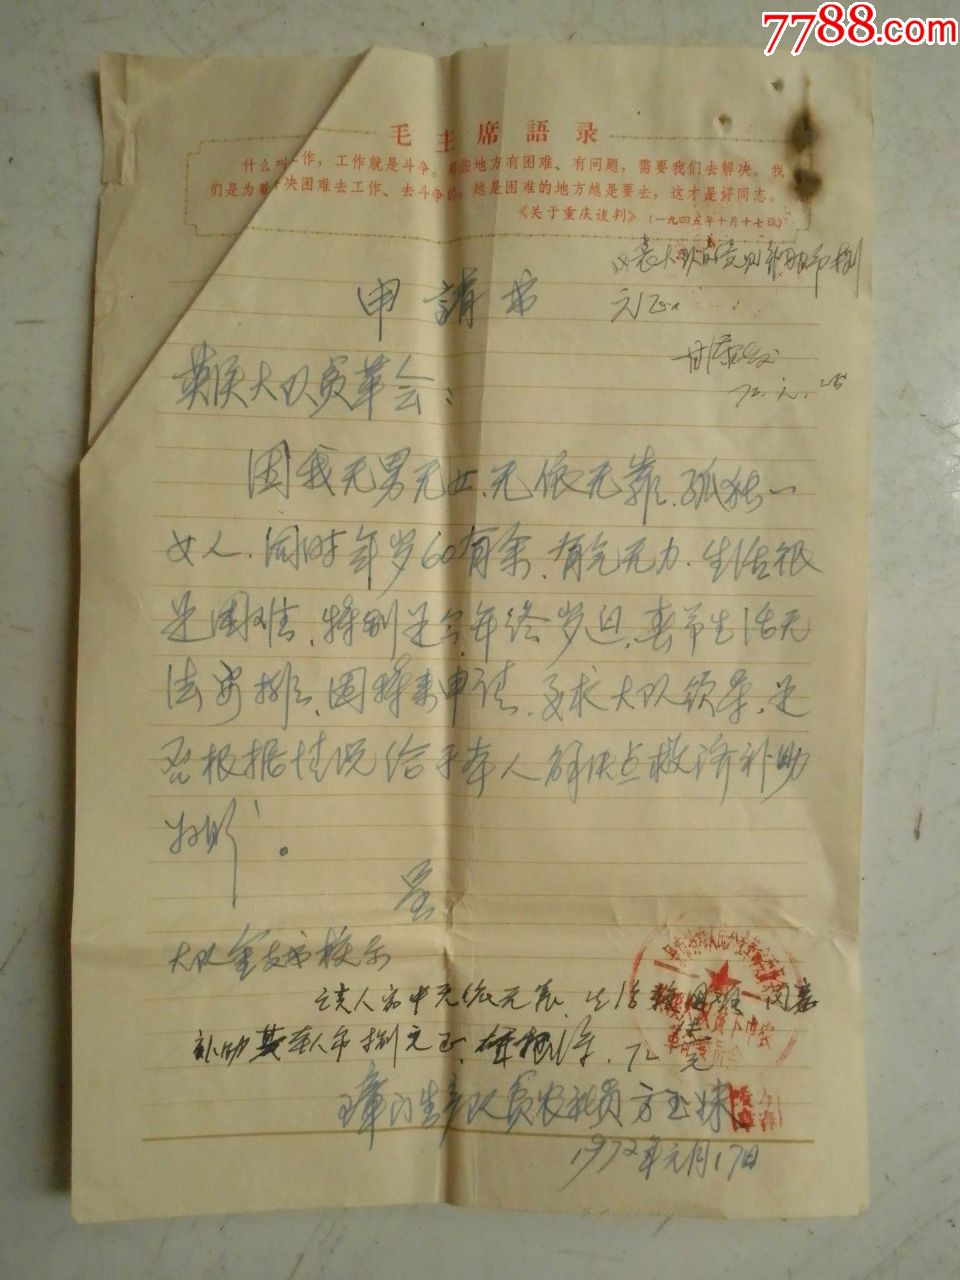 7788.com
毛主席語录
什么叫作，工作就是斗争。那些地方有困难、有问题，需要我们去解决。我
们是为着决困难去工作、去斗争的，越是困难的地方越是要去，这才是好同志。
《关于重庆谈判》（一九四五年十月十七日）
大队意见补助币捌
元正
72.元.25
申請书
大队贫革会：
因我无男无女、无依无靠、孤独一
女人、同时年岁60有余、有气无力、生活很
是困难、特别是今年终岁迫、春节生活无
法安排、因择来申请、要求大队领导、是
否根据情况给于本人解决点救济补助
为盼！
呈
大队革支部核示
该人家中无依无靠、生活困难 同意
补助其本人币捌元正、72
生产队贫农社员方玉妹
1972年元月17日